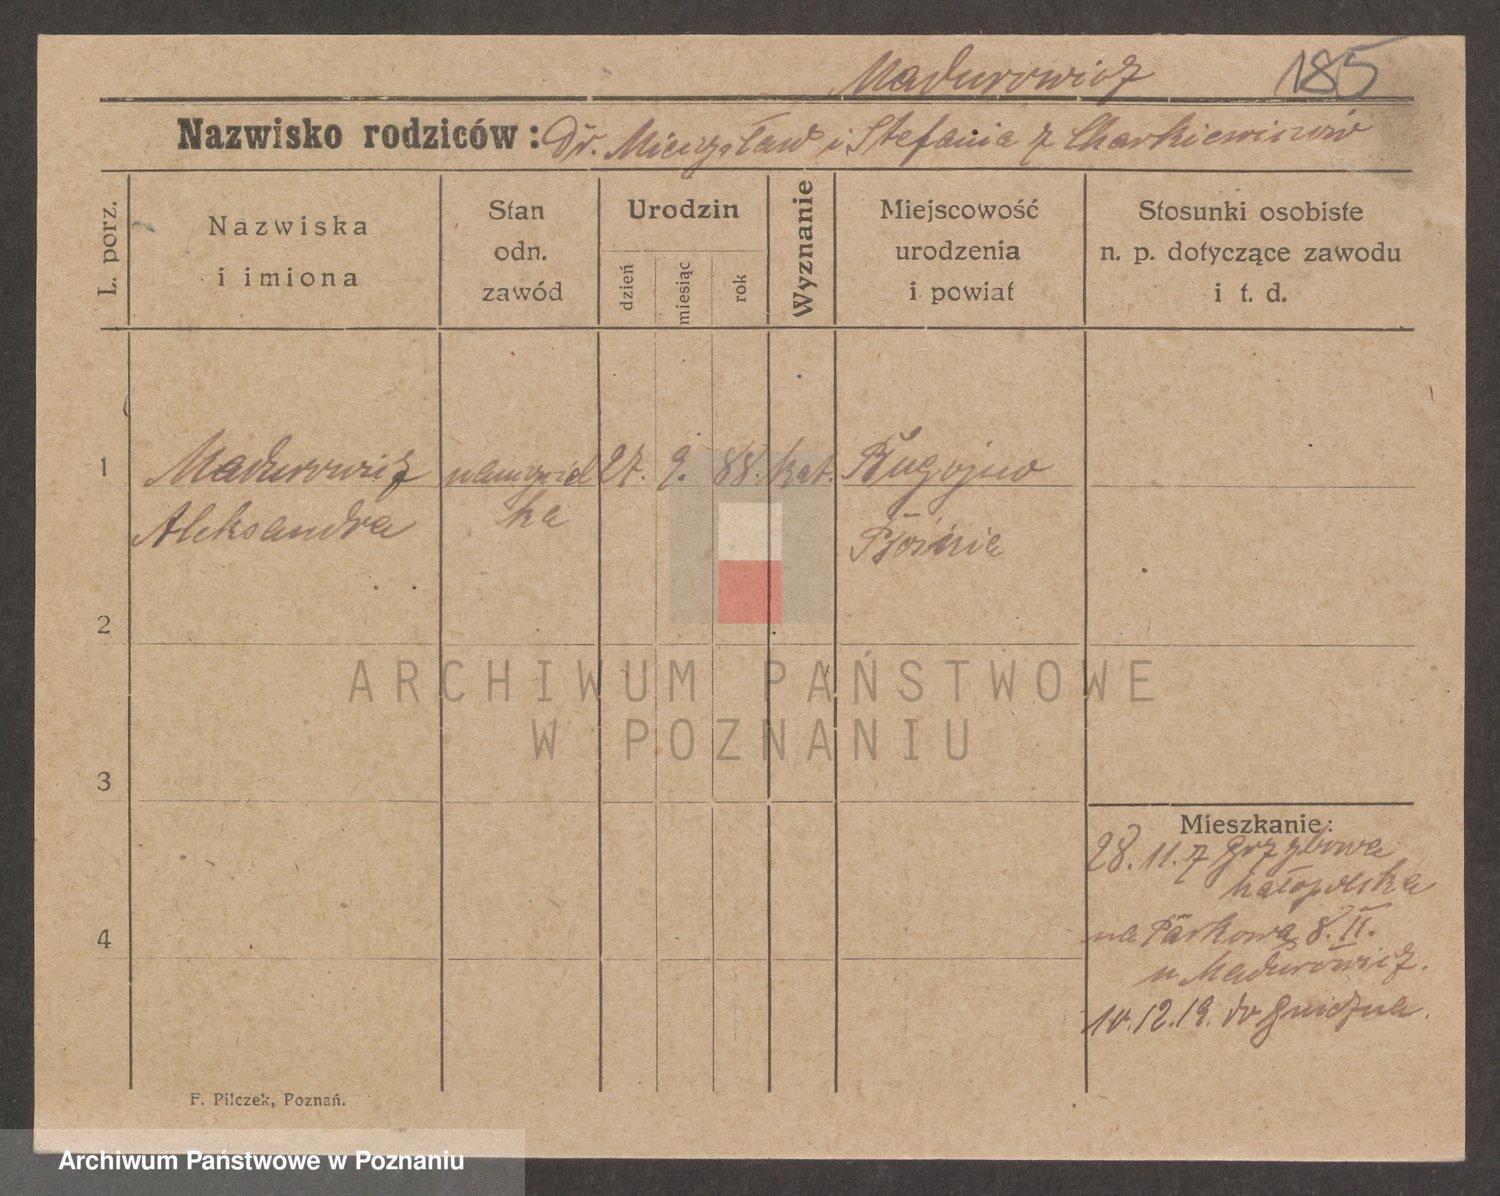 Madurowicz 185
Nazwisko rodziców: Dr. Mieczysław i Stefania z Charkiewiczów
L. porz.
Nazwiska
i imiona
Stan
odn.
zawód
Urodzin
dzień
miesiąc
rok
Wyznanie
Miejscowość
urodzenia
i powiat
Stosunki osobiste
n. p. dotyczące zawodu
i t. d.
1 Madurowicz 27. 9. 88. kat. Bugojno
Aleksandra ka Bośnia
2
3
4
ARCHIWUM PAŃSTWOWE
W POZNANIU
Mieszkanie:
28. 11. z Grzybowa
małopolska
na Parkową 8. II.
u Madurowicz.
10.12.19. do Gniezna.
F. Pilczek, Poznań.
Archiwum Państwowe w Poznaniu